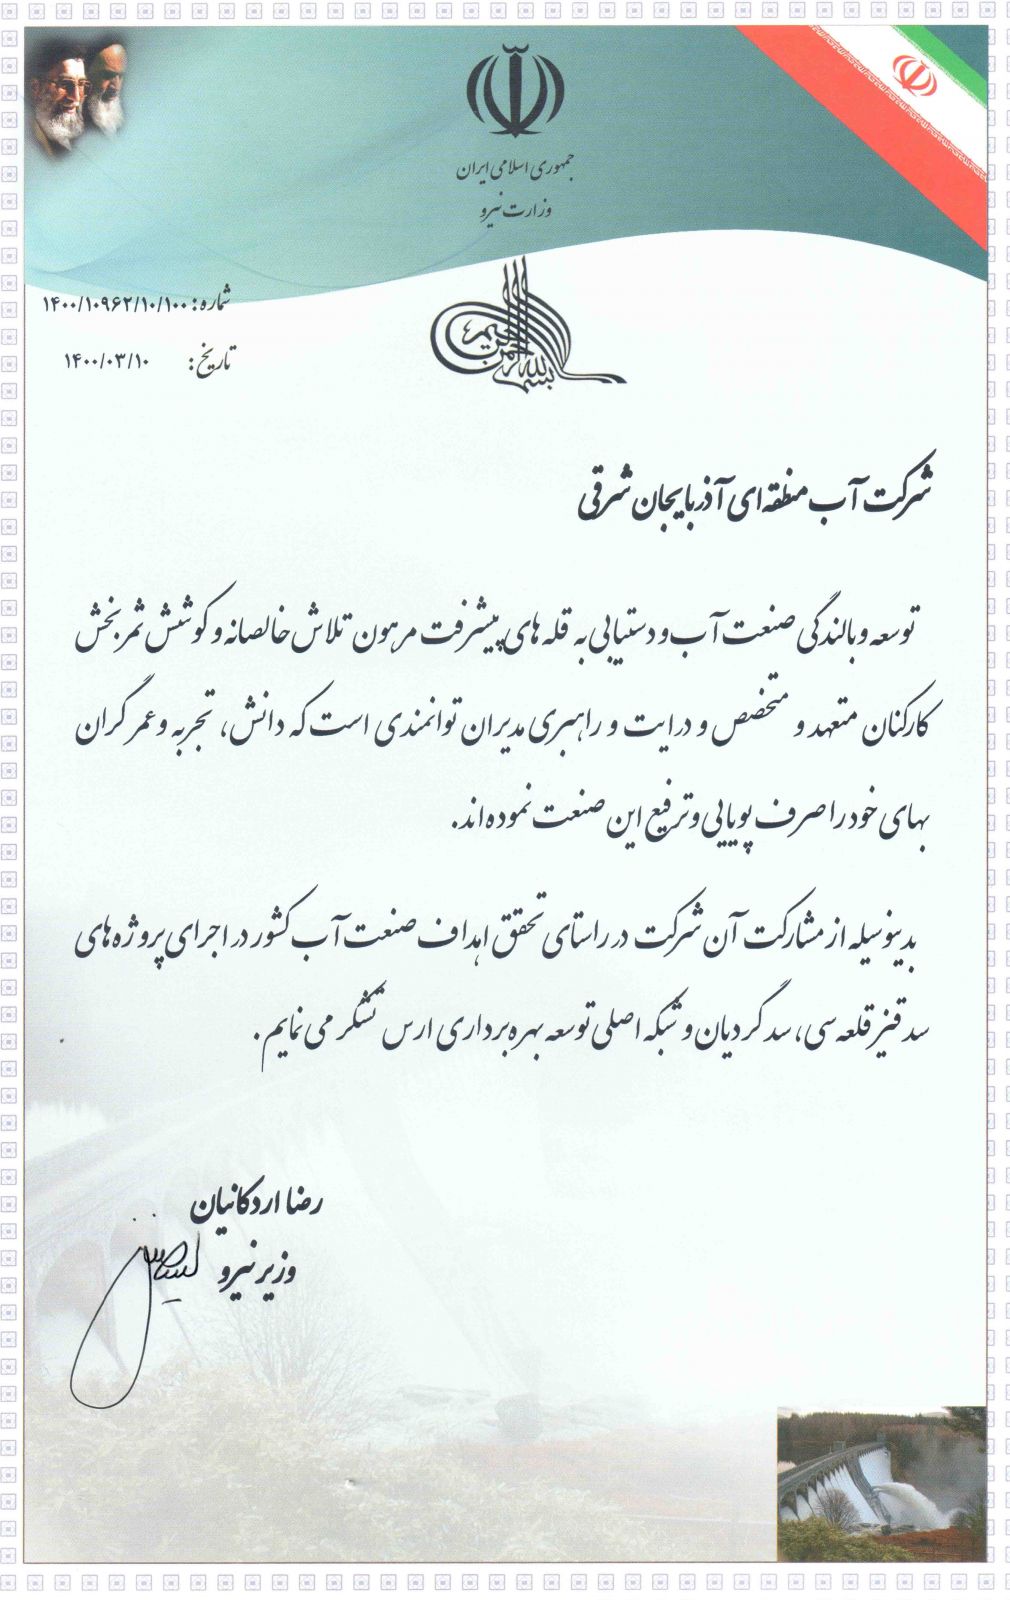 جمهوری اسلامی ایران
وزارت نیرو
بسم الله الرحمن الرحیم
شماره: ۱۴۰۰/۱۰۹۶۲/۱۰/۱۰۰
تاریخ: ۱۴۰۰/۰۳/۱۰
شرکت آب منطقه ای آذربایجان شرقی
توسعه و بالندگی صنعت آب و دستیابی به قله های پیشرفت مرهون تلاش خالصانه و کوشش ثمربخش
کارکنان متعهد و متخصص و درایت و راهبری مدیران توانمندی است که دانش، تجربه و عمر گران
بهای خود را صرف پویایی و ترفیع این صنعت نموده اند.
بدینوسیله از مشارکت آن شرکت در راستای تحقق اهداف صنعت آب کشور در اجرای پروژه های
سد قیز قلعه سی، سد گردیان و شبکه اصلی توسعه بهره برداری ارس تشکر می نمایم.
رضا اردکانیان
وزیر نیرو